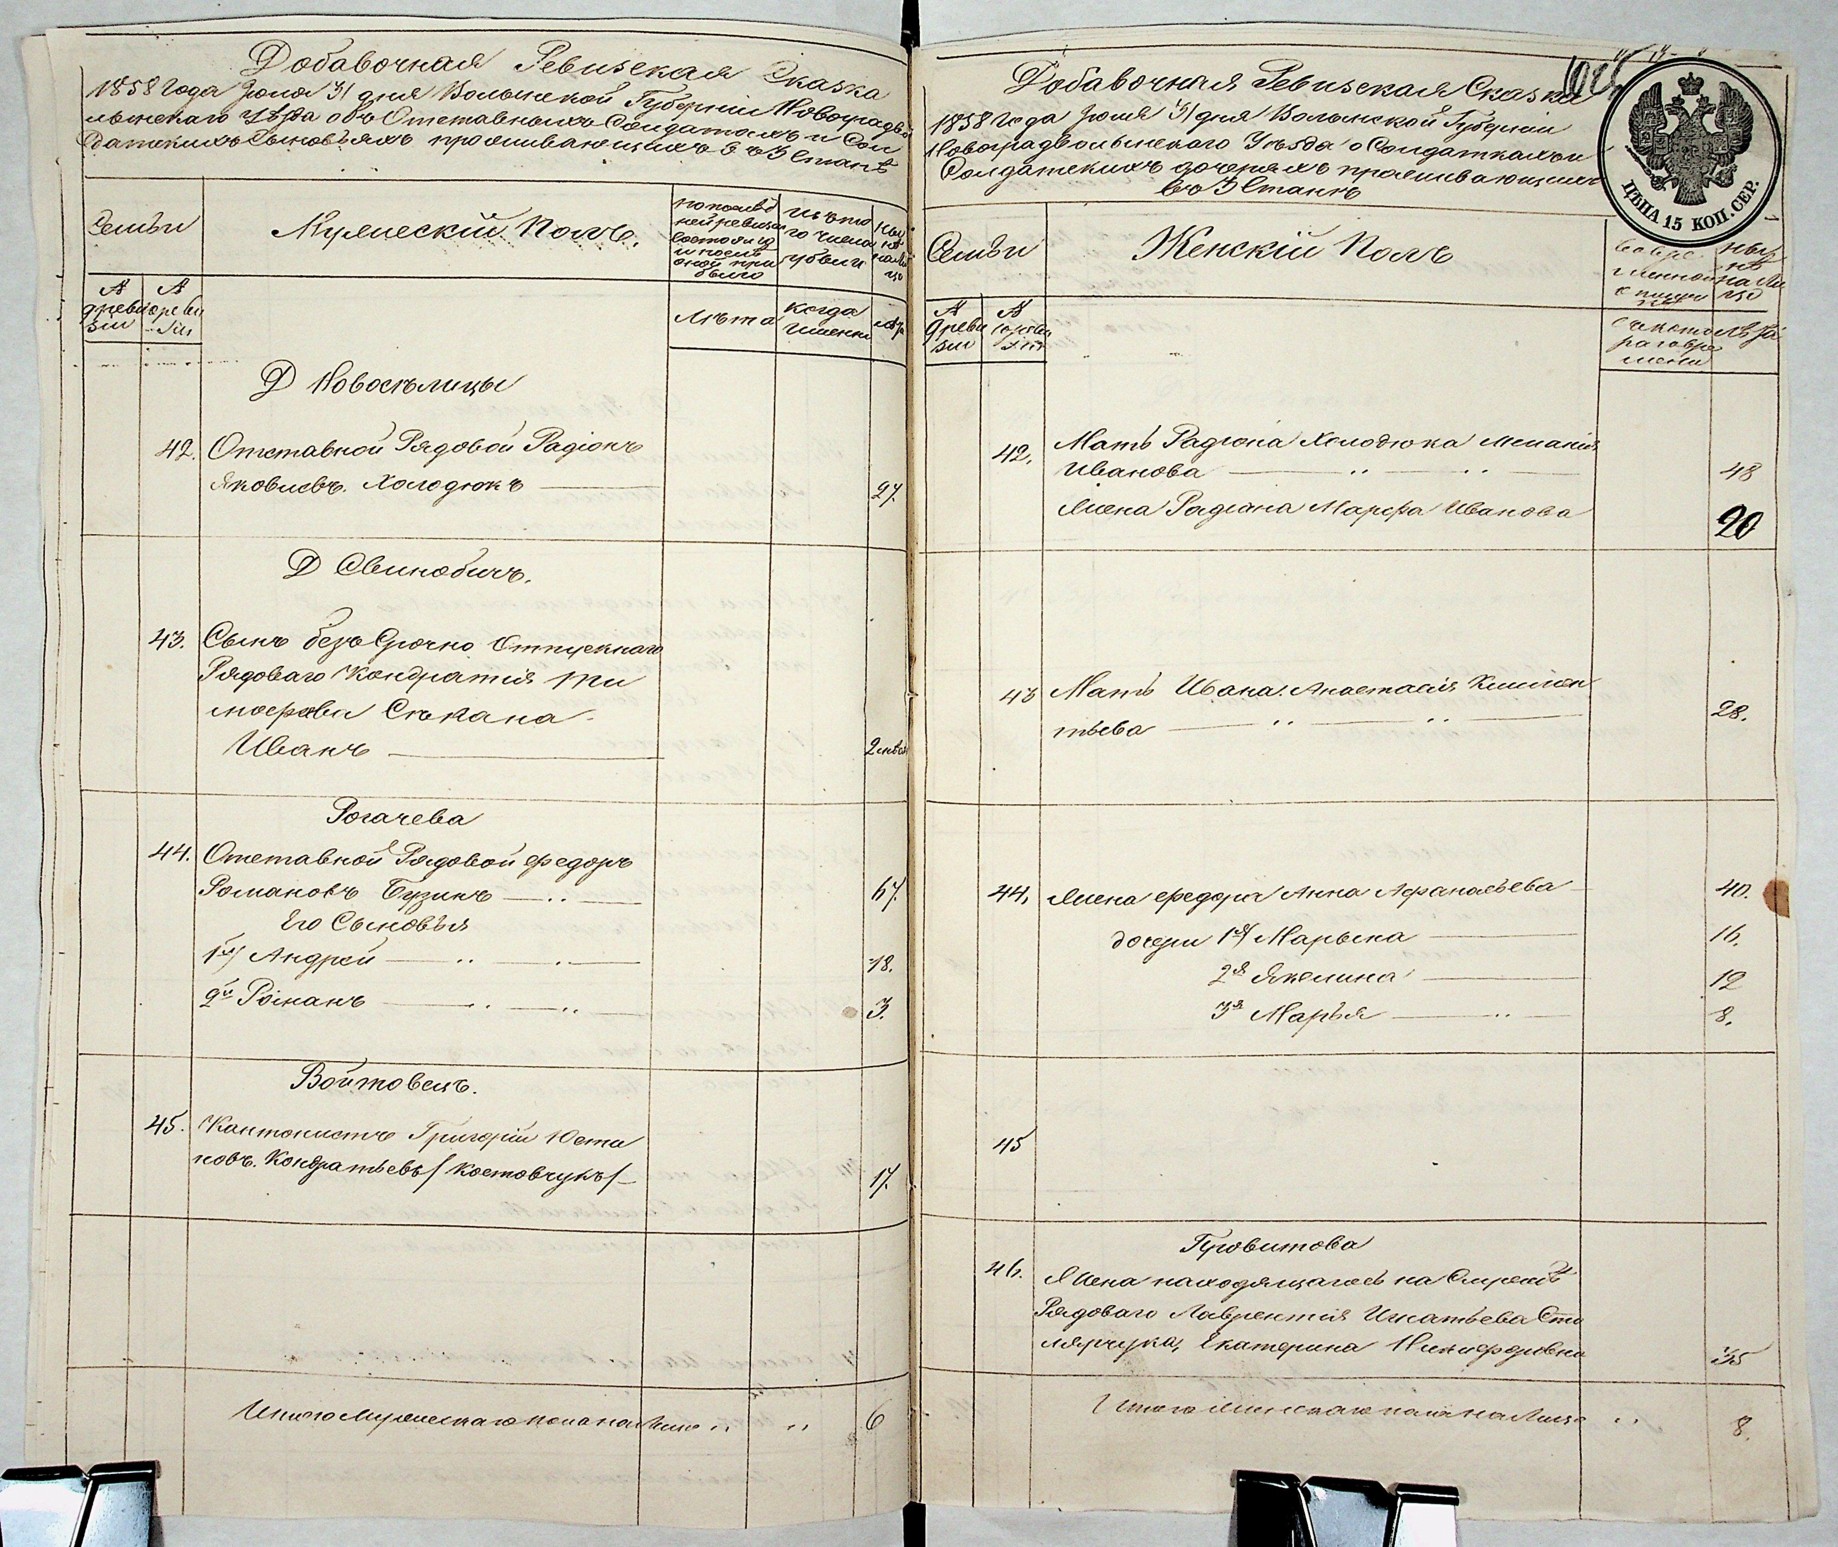 Добавочная Ревизская Сказка
1858 года Июля 31 дня Волынской Губерніи Новоградво
лынскаго уѣзда объ Отставныхъ Солдатахъ и Сол
датскихъ Сыновьяхъ проживающихъ въ 3 Станѣ
Семьи
Мужескій Полъ.
по послѣд
ней ревизіи
состояло
и послѣ
оной при
было
изъ то
го числа
убыли
ныѣ
на ли
цо
№
ревизіи
№
ревизіи
Лѣта
когда
именно
лѣта
Д Новосѣлицы
42. Отставной Рядовой Радіонъ
Яковлевъ Холодюкъ 27.
Д Свинобичъ.
43. Сынъ безъ Срочно Отпускнаго
Рядоваго Кондратія Ти
мофѣева Сѣкана
Иванъ 2 мѣся
Рогачева
44. Отставной Рядовой Федоръ
Романовъ Бузинъ 67.
Его Сыновья
1й Андрей 18.
2й Романъ 3.
Войтовецъ.
45. Кантонистъ Григорій Юсти
новъ Кондратьевъ / Костовчукъ / 17.
Итого Мужескаго пола на Лицо 6
Добавочная Ревизская Сказка
1858 года Июля 31 дня Волынской Губерніи
Новоградволынскаго Уѣзда о Солдаткахъ и
Солдатскихъ дочеряхъ проживающихъ
въ 3 Станѣ
ЦѢНА 15 КОП. СЕР.
Семьи
Женскій Полъ
ныѣ
на ли
цо
№
ревизіи
№
лѣта
42. Мать Радіона Холодюка Меланія
Иванова 48
Жена Радіона Марфа Иванова 20
43 Мать Ивана Анастасія Климен
тьева 28.
44. Жена Федора Анна Афанасьева 40.
дочери 1я Марьяна 16.
2я Якилина 12
3я Марья 8.
45
Гуровитова
46. Жена находящагося на Службѣ
Рядоваго Лаврентія Игнатьева Сто
лярчука, Екатерина Никифоровна 35
Итого Женскаго пола на Лицо 8.